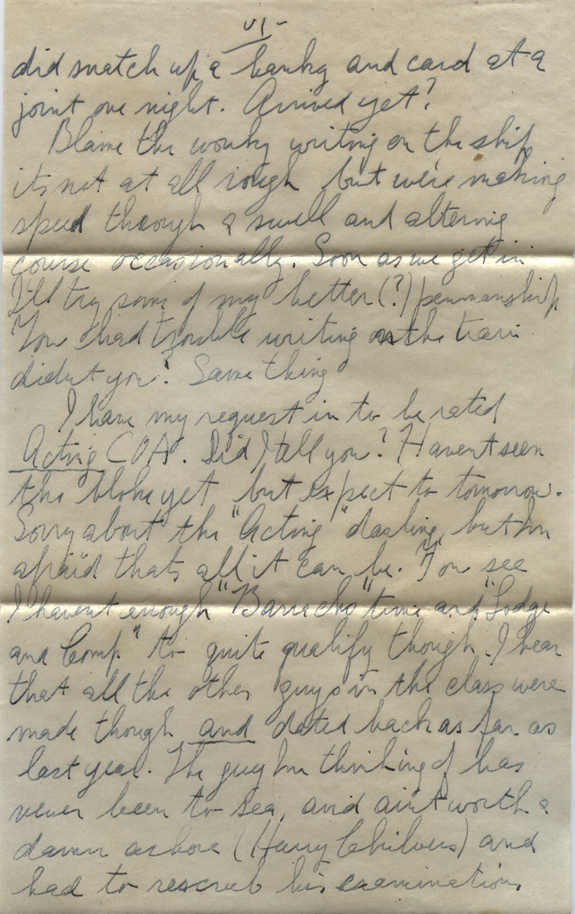 VI-
did snatch up a hanky and card at a
joint one night. Arrived yet?
Blame the wonky writing on the ship
its not at all rough but we're making
speed through a swell and altering
course occasionally. Soon as we get in
I'll try some of my better (?) penmanship
You had trouble writing on the train
didn't you? Same thing
I have my request in to be rated
Acting COA. Did I tell you? Havent seen
the bloke yet but expect to tomorrow.
Sorry about the "Acting" darling, but Im
afraid thats all it can be. You see
I havent enough "Barracks" time and "Lodge
and Comp" to quite qualify though. I hear
that all the other guys in the class were
made though and dated back as far as
last year. The guy Im thinking of has
never been to sea, and aint worth a
damn ashore (Harry Chilvers) and
had to rescrub his examinations